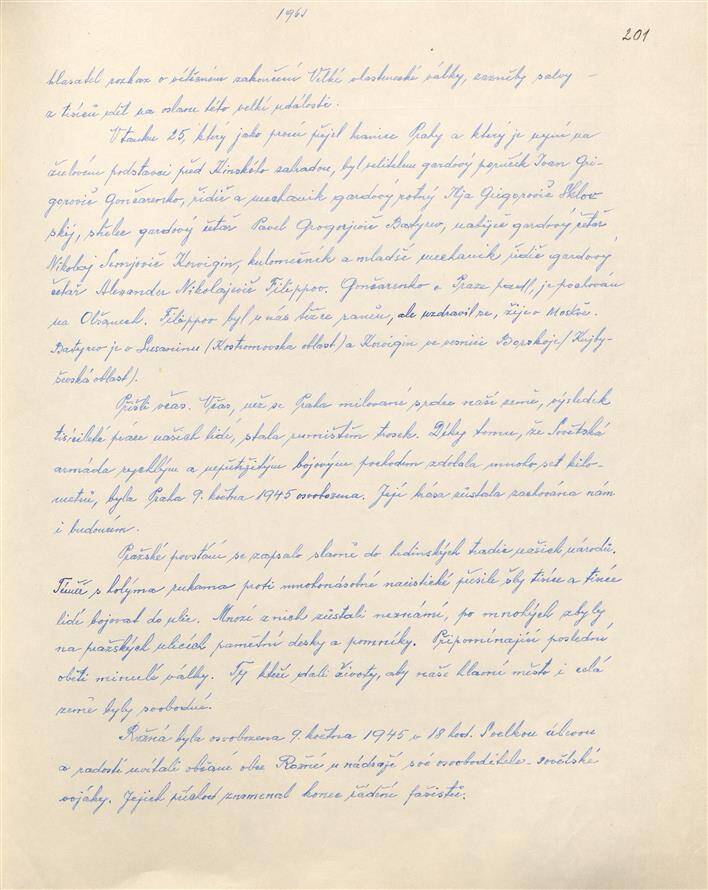 1965
201
hlasatel rozkaz o vítězném zakončení Velké vlastenecké války, zazněly salvy –
z tisíců děl na oslavu této velké události.
V tanku 25, který jako první přejel hranice Prahy a který je nyní na
žulovém podstavci před Kinského zahradou, byl velitelem gardový poručík Ivan Gri-
gorovič Gončarenko, řidič a mechanik gardový rotný Ilja Grigorovič Šklov-
skij, střelec gardový četař Pavel Grogorjevič Batyrev, nabíječ gardový četař
Nikolaj Semjovič Kovrigin, kulometčník a mladší mechanik řidič gardový
četař Alexander Nikolajevič Filippov. Gončarenko v Praze padl, je pochován
na Olšanech. Filippov byl u nás těžce raněn, ale uzdravil se, žije v Moskvě.
Batyrev je v Susaninu (Kostromovská oblast) a Kovrigin ve vesnici Borskoje (Kujby-
ševská oblast).
Přišli včas. Včas, než se Praha milované srdce naší země, výsledek
tisícileté práce našich lidí, stala rumištěm trosek. Díky tomu, že Sovětská
armáda rychlým a nepřetržitým bojovým pochodem zdolala mnoho set kilo-
metrů, byla Praha 9. května 1945 osvobozena. Její krása zůstala zachována nám
i budoucím.
Pražské povstání se zapsalo slavně do hrdinských tradic našich národů.
Téměř s holýma rukama proti mnohonásobné nacistické přesile šly tisíce a tisíce
lidí bojovat do ulic. Mnozí z nich zůstali neznámí, po mnohých zbyly
na pražských ulicích pamětní desky a pomníky. Připomínající poslední
oběti minulé války. Ty kteří dali životy, aby naše hlavní město i celá
země byly svobodné.
Rožná byla osvobozena 9. května 1945 v 18 hod. S velkou úlevou
a radostí uvítali občané obce Rožné u nádraží své osvoboditele – sovětské
vojáky. Jejich příchod znamenal konec řádění fašistů.